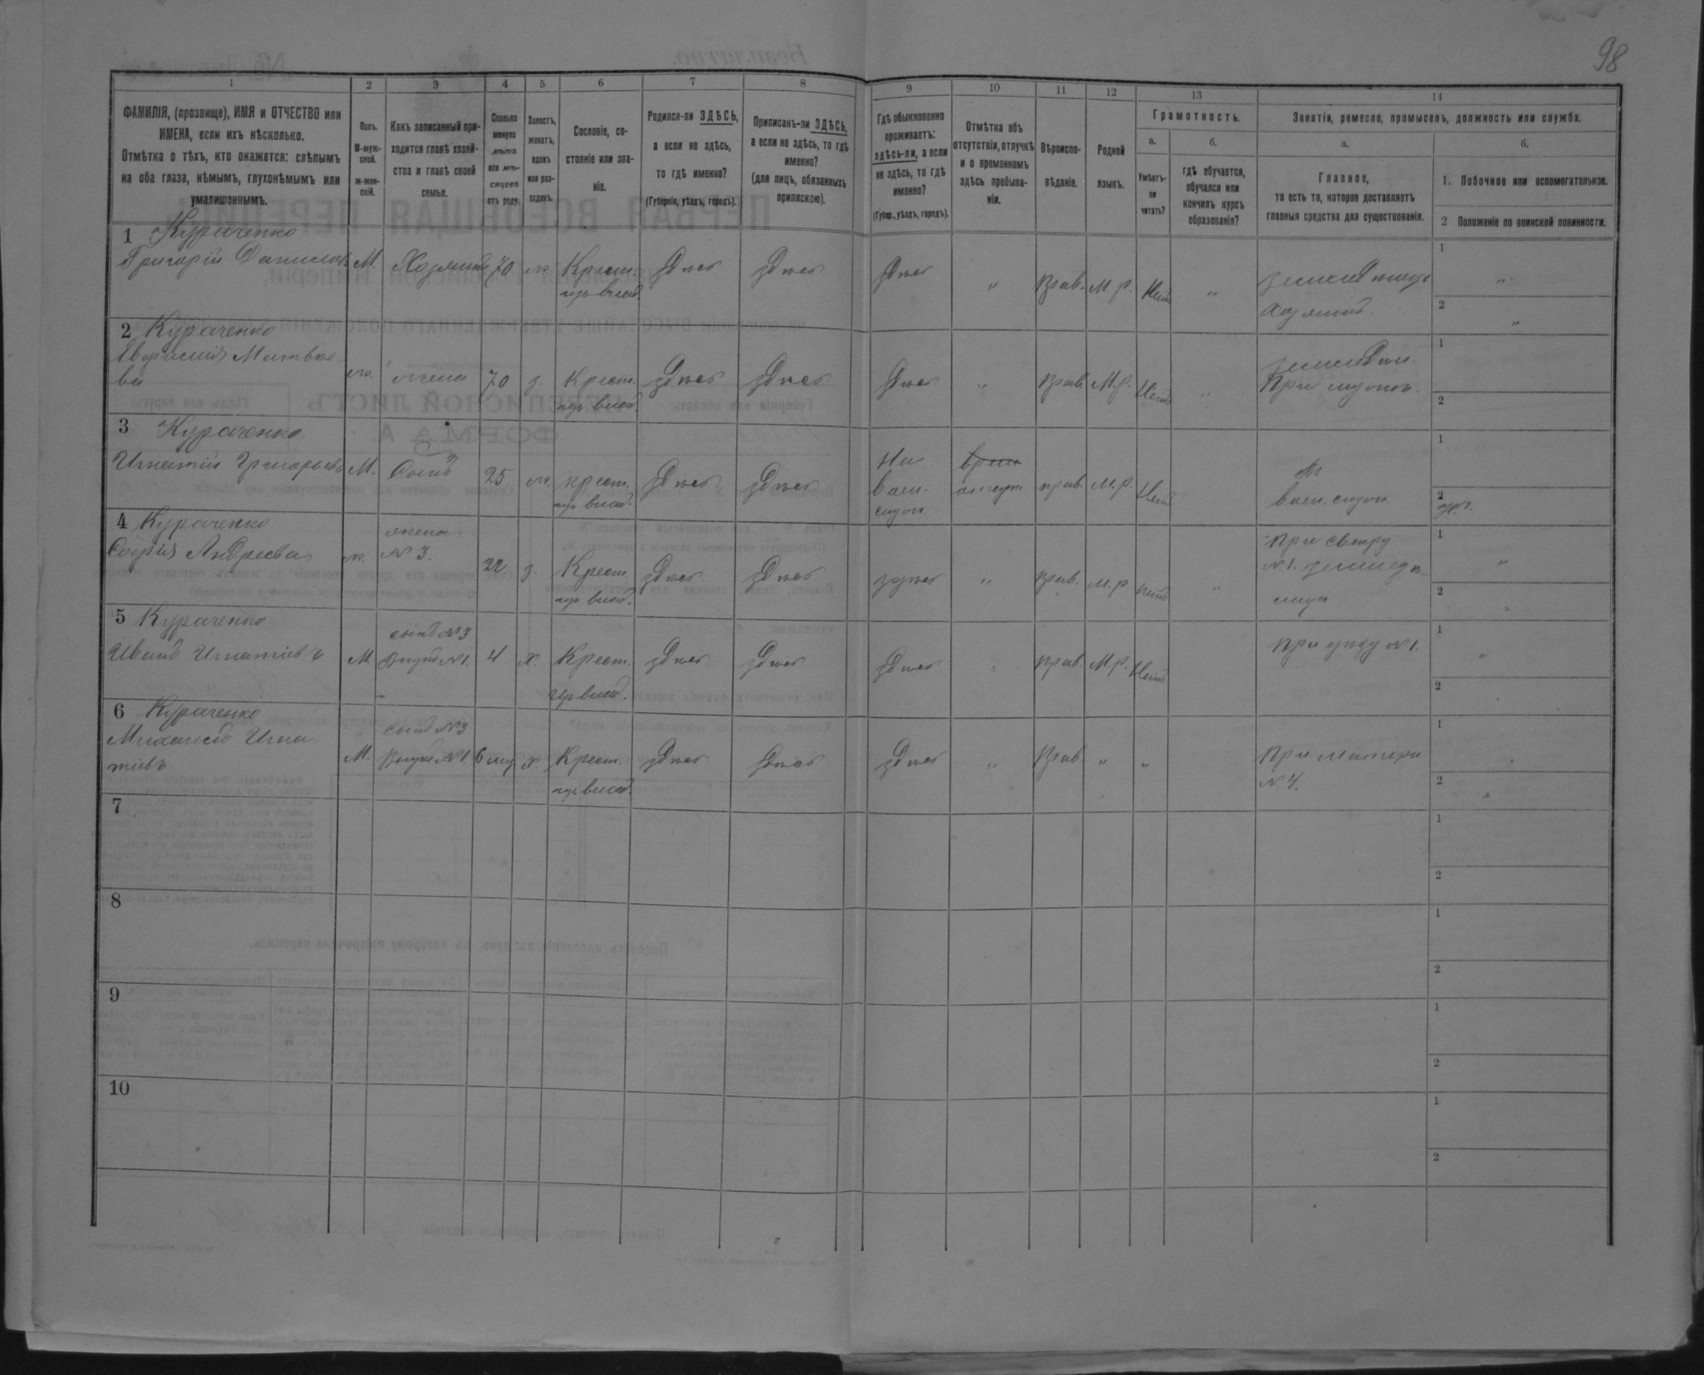 98
1 2 3 4 5 6 7 8 9 10 11 12 13 14
ФАМИЛІЯ, (прозвище), ИМЯ и ОТЧЕСТВО или
ИМЕНА, если ихъ нѣсколько.
Отмѣтка о тѣхъ, кто окажется: слѣпымъ
на оба глаза, нѣмымъ, глухонѣмымъ или
умалишоннымъ.
Полъ.
М-муж-
ской.
ж-жен-
скій.
Какъ записанный при-
ходится главѣ хозяй-
ства и главѣ своей
семьи.
Сколько
минуло
лѣтъ
или мѣ-
сяцевъ
отъ роду.
Холостъ,
женатъ,
вдовъ
или раз-
веденъ.
Сословіе, со-
стояніе или зва-
ніе.
Родился-ли ЗДѢСЬ,
а если не здѣсь,
то гдѣ именно?
(Губернія, уѣздъ, городъ).
Приписанъ-ли ЗДѢСЬ,
а если не здѣсь, то гдѣ
именно?
(для лицъ, обязанныхъ
припискою).
Гдѣ обыкновенно
проживаетъ:
здѣсь-ли, а если
не здѣсь, то гдѣ
именно?
(Губер., уѣздъ, городъ).
Отмѣтка объ
отсутствіи, отлучкѣ
и о временномъ
здѣсь пребыва-
ніи.
Вѣроиспо-
вѣданіе.
Родной
языкъ.
Грамотность.
а.
Умѣетъ-
ли
читать?
б.
гдѣ обучается,
обучался или
кончилъ курсъ
образованія?
Занятіе, ремесло, промыселъ, должность или служба.
а.
Главное,
то есть то, которое доставляетъ
главныя средства для существованія.
б.
1. Побочное или вспомогательное.
2 Положеніе по воинской повинности.
1 Кураченко
Григорій Данилов М Хозяинъ 70 ж. Крест. здѣсь здѣсь здѣсь " Прав. М.р. Нѣтъ "
изъ влад. хозяинъ.
1 "
2 "
2 Кураченко
Матвѣе
ва ж. жена 70 з. Крест. здѣсь здѣсь здѣсь " Прав. М.р. Нѣтъ "
изъ влад. При мужѣ
1
2
3 Кураченко
Игнатій Григорьевъ М. Сынъ 25 ж. крест. здѣсь здѣсь На воен. служ. прав. м.р. Нѣтъ
изъ влад. воен. служ.
1
2
4 Кураченко
Софія Андреева ж. жена № 3. 22 з. Крест. здѣсь здѣсь здѣсь " прав. м.р. нѣтъ "
изъ влад. При свекру
№ 1.
1 "
2 "
5 Кураченко
Иванъ Игнатіевъ М сынъ № 3
Внукъ № 1. 4 х. Крест. здѣсь здѣсь здѣсь " прав. М.р. Нѣтъ
изъ влад. При дѣду № 1.
1 "
2 "
6 Кураченко
Михаилъ Игна
тіевъ М. сынъ № 3
Внукъ № 1 6 мѣс х. Крест. здѣсь здѣсь здѣсь " Прав. " "
изъ влад. При матери
№ 4.
1 "
2 "
7
1
2
8
1
2
9
1
2
10
1
2